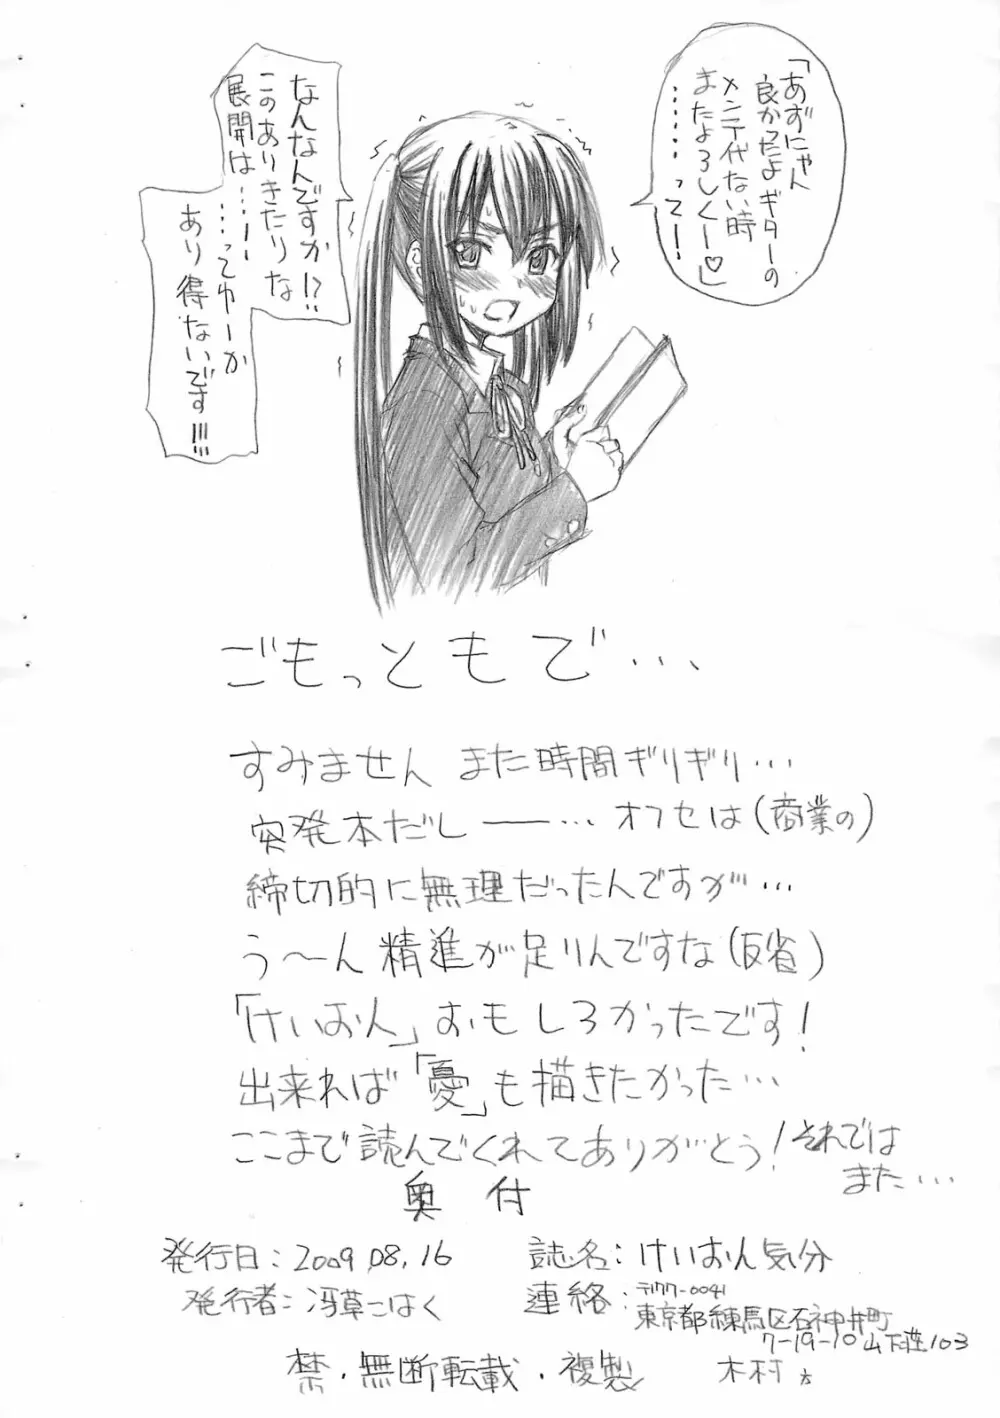 「あずにゃん
良かったよギターの
メンテ代ない時
またよろしくー♡」
……って！
なんなんですか!?
このありきたりな
展開は…！
…ってゆーか
あり得ないです!!!
ごもっともで…
すみません また時間ギリギリ…
突発本だしー… オフセは(商業の)
締切的に無理だったんですが…
う〜ん 精進が足りんですな(反省)
「けいおん」おもしろかったです！
出来れば「憂」も描きたかった…
ここまで読んでくれてありがとう！それでは
また…
奥付
発行日：2009,08,16
誌名：けいおん気分
発行者：冴草こはく
連絡：〒177-0041
東京都練馬区石神井町
7-19-10 山下荘103
禁・無断転載・複製
木村